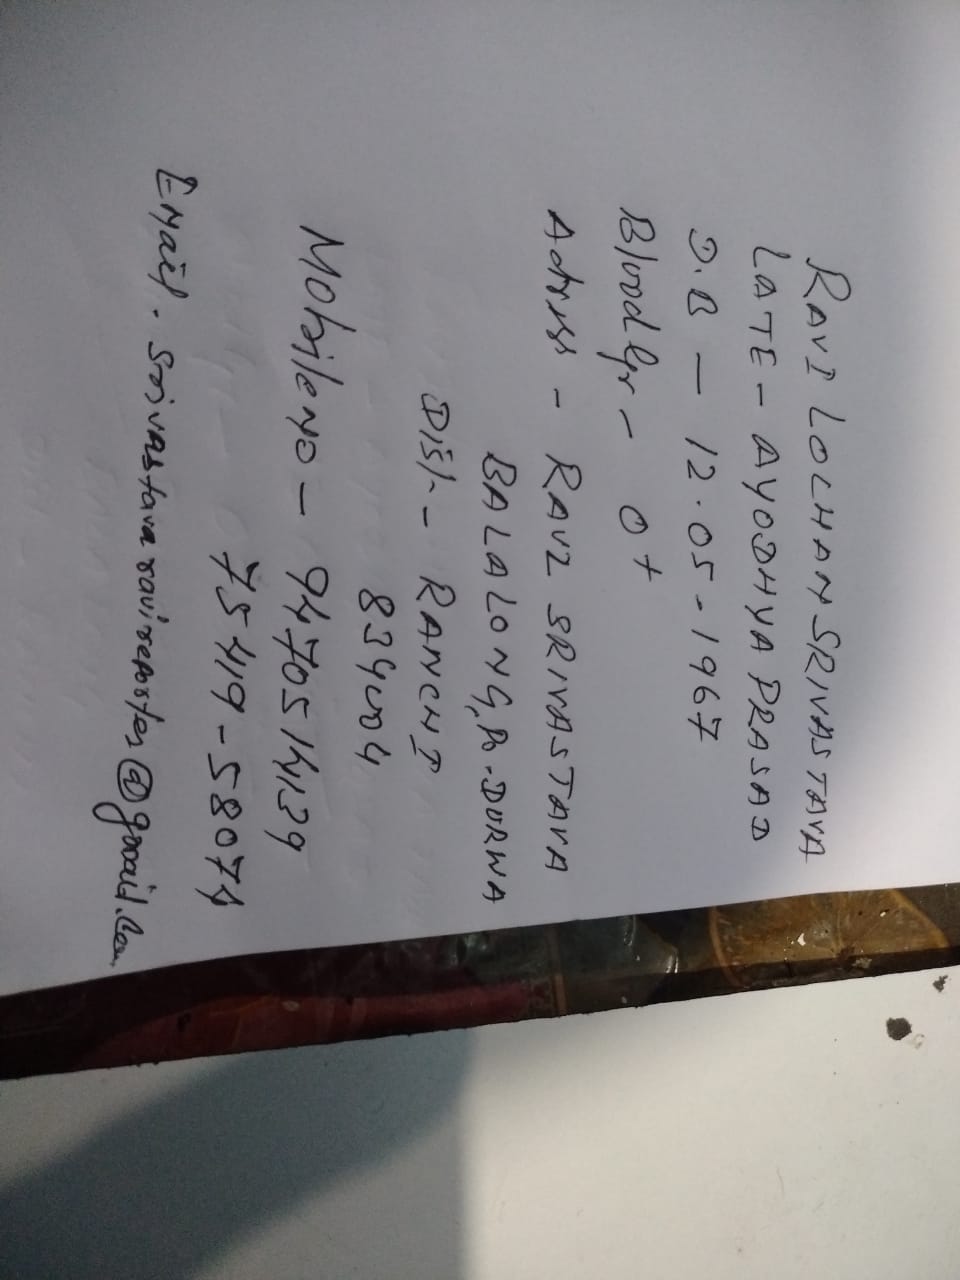 RAVI LOCHAN SRIVASTAVA
LATE - AYODHYA PRASAD
D.B - 12.05-1967
Blood Gr - O+
Adrss - RAVI SRIVASTAVA
BALALONG, P.-DURWA
Dist - RANCHI
834004
Mobile NO - 9470514139
75419-58074
Email. Srivastavaravireporter@gmail.com